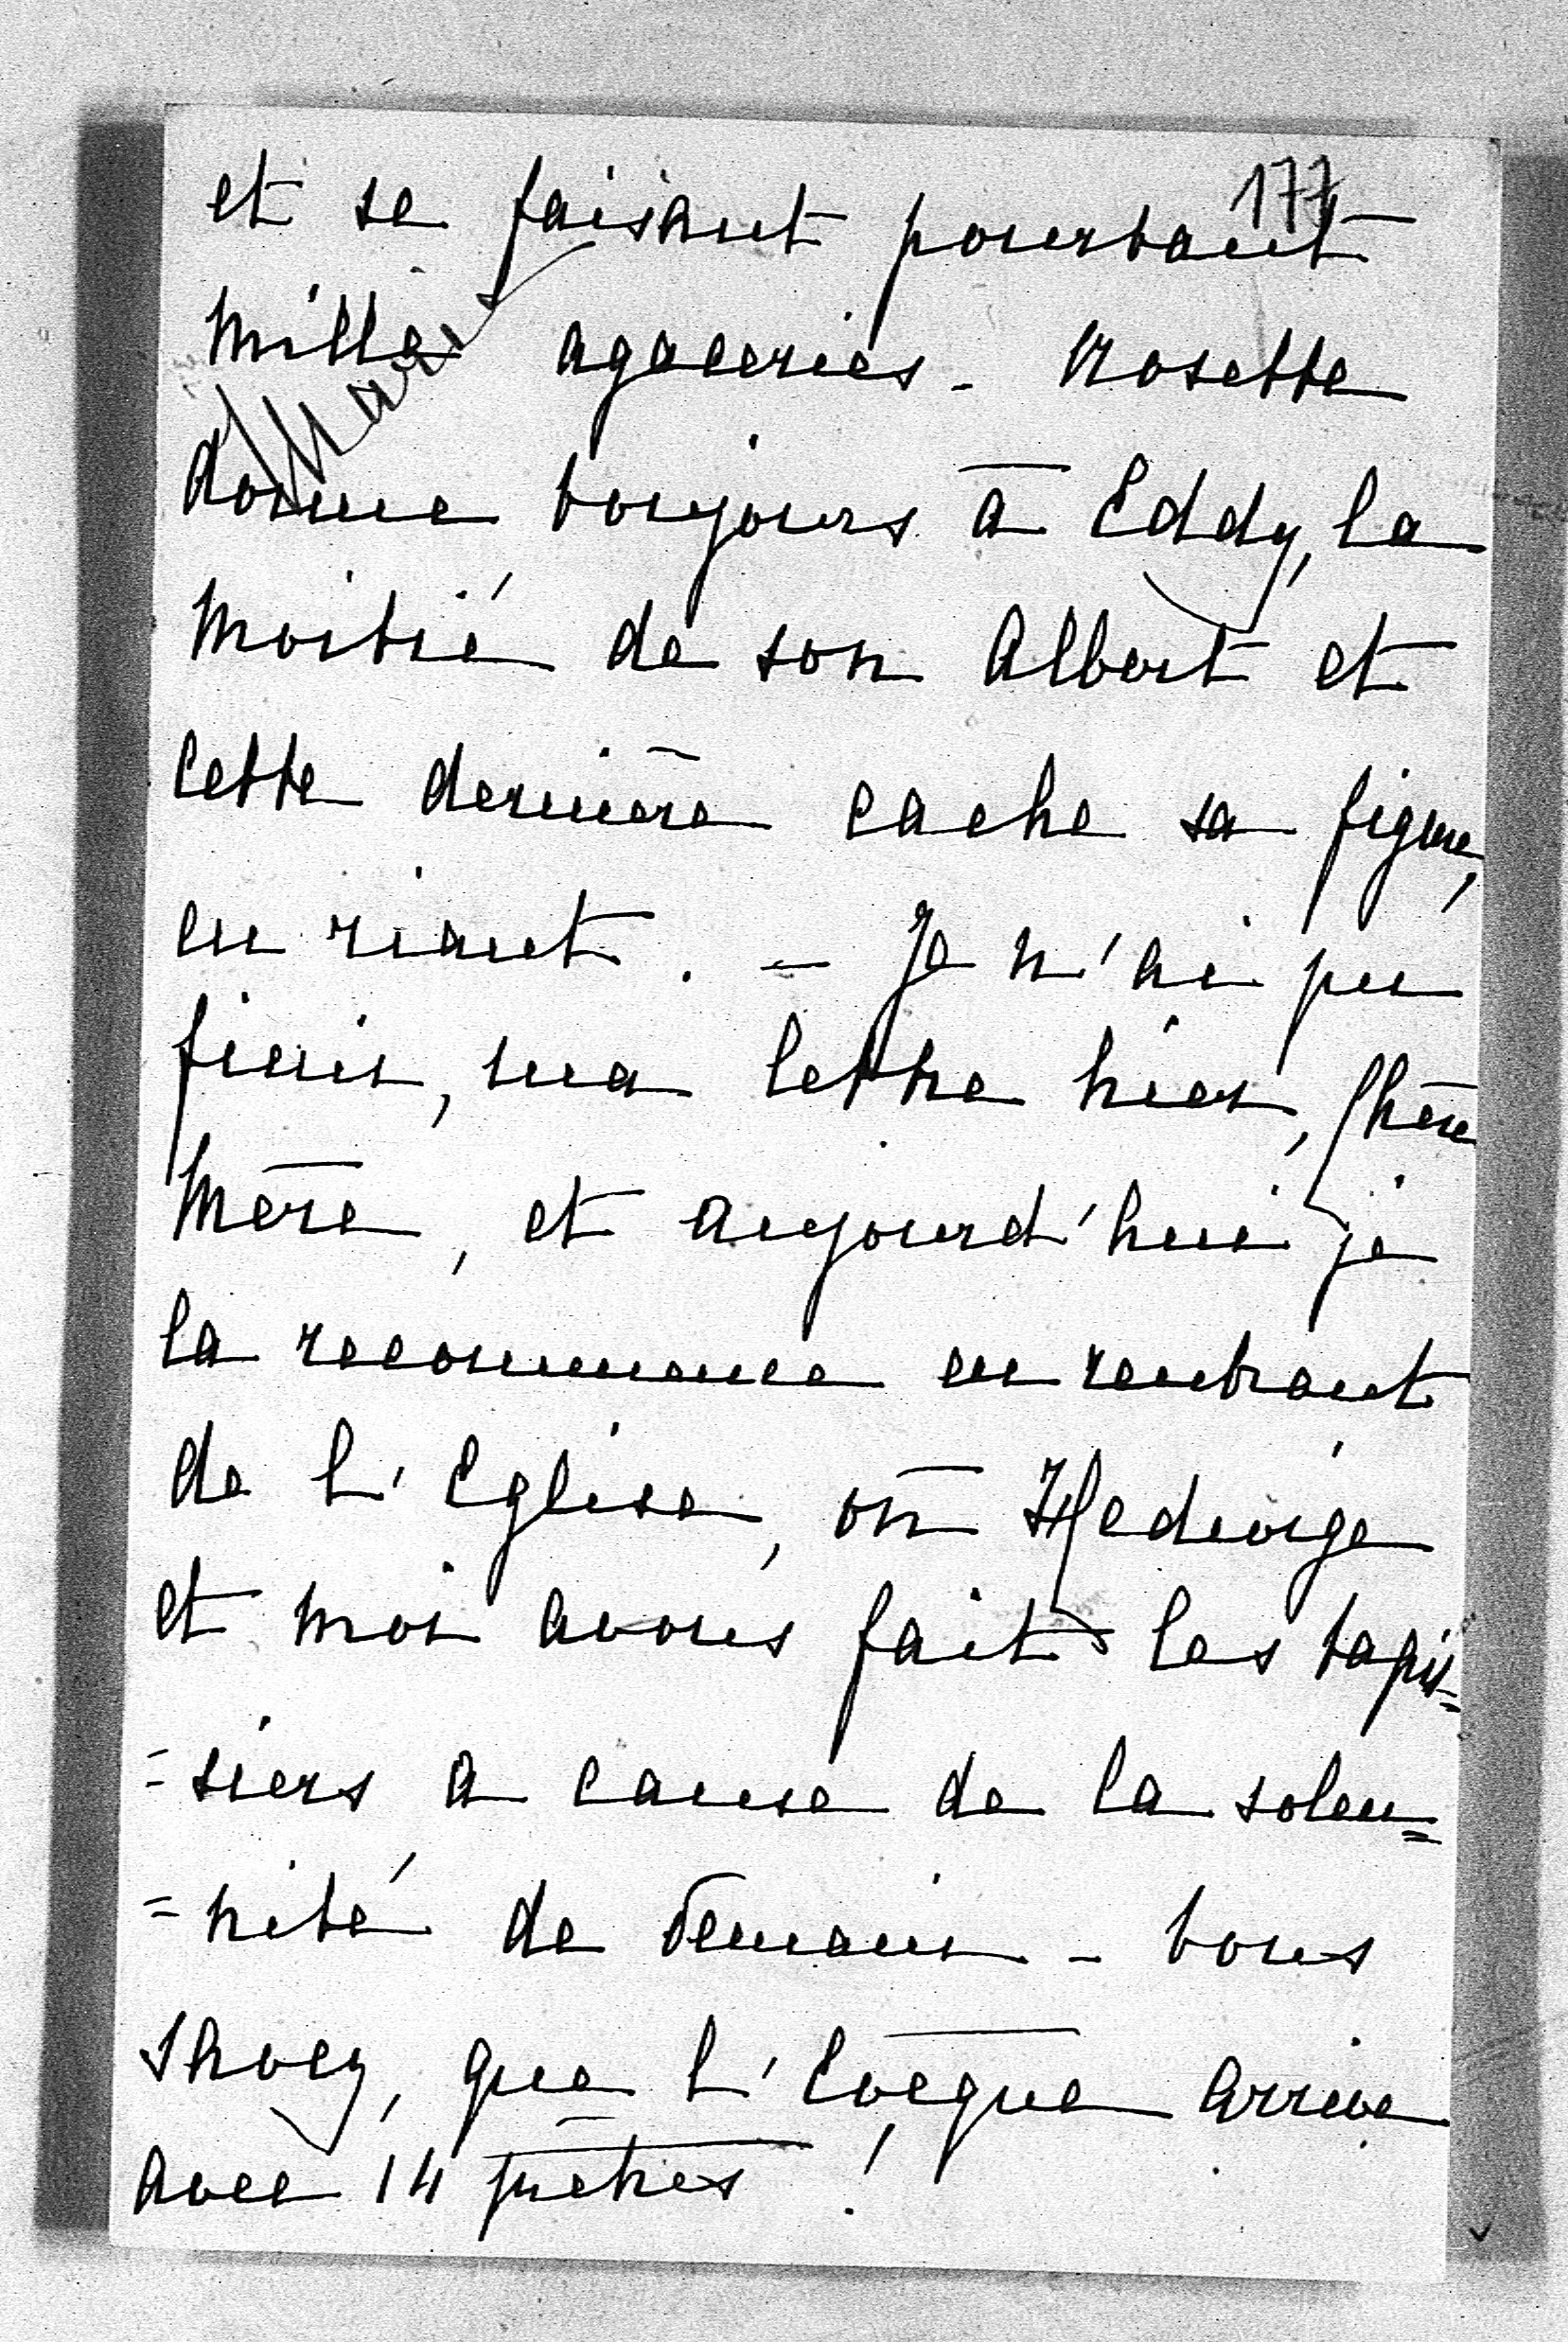 177
et se faisant pourtant
mille agaceries - Rosette
donne toujours à Eddy, la
moitié de son Albert et
cette dernière cache sa figure,
en riant. - Je n'ai pu
finir, ma lettre hier, Chère
Mère, et aujourd'hui je
la recommence en rentrant
de l'Eglise, où Hedwige
et moi avons fait les tapis=
=siers a cause de la solen=
=nité de Demain - vous
savez, que l'Evêque arrive
avec 14 prêtres !